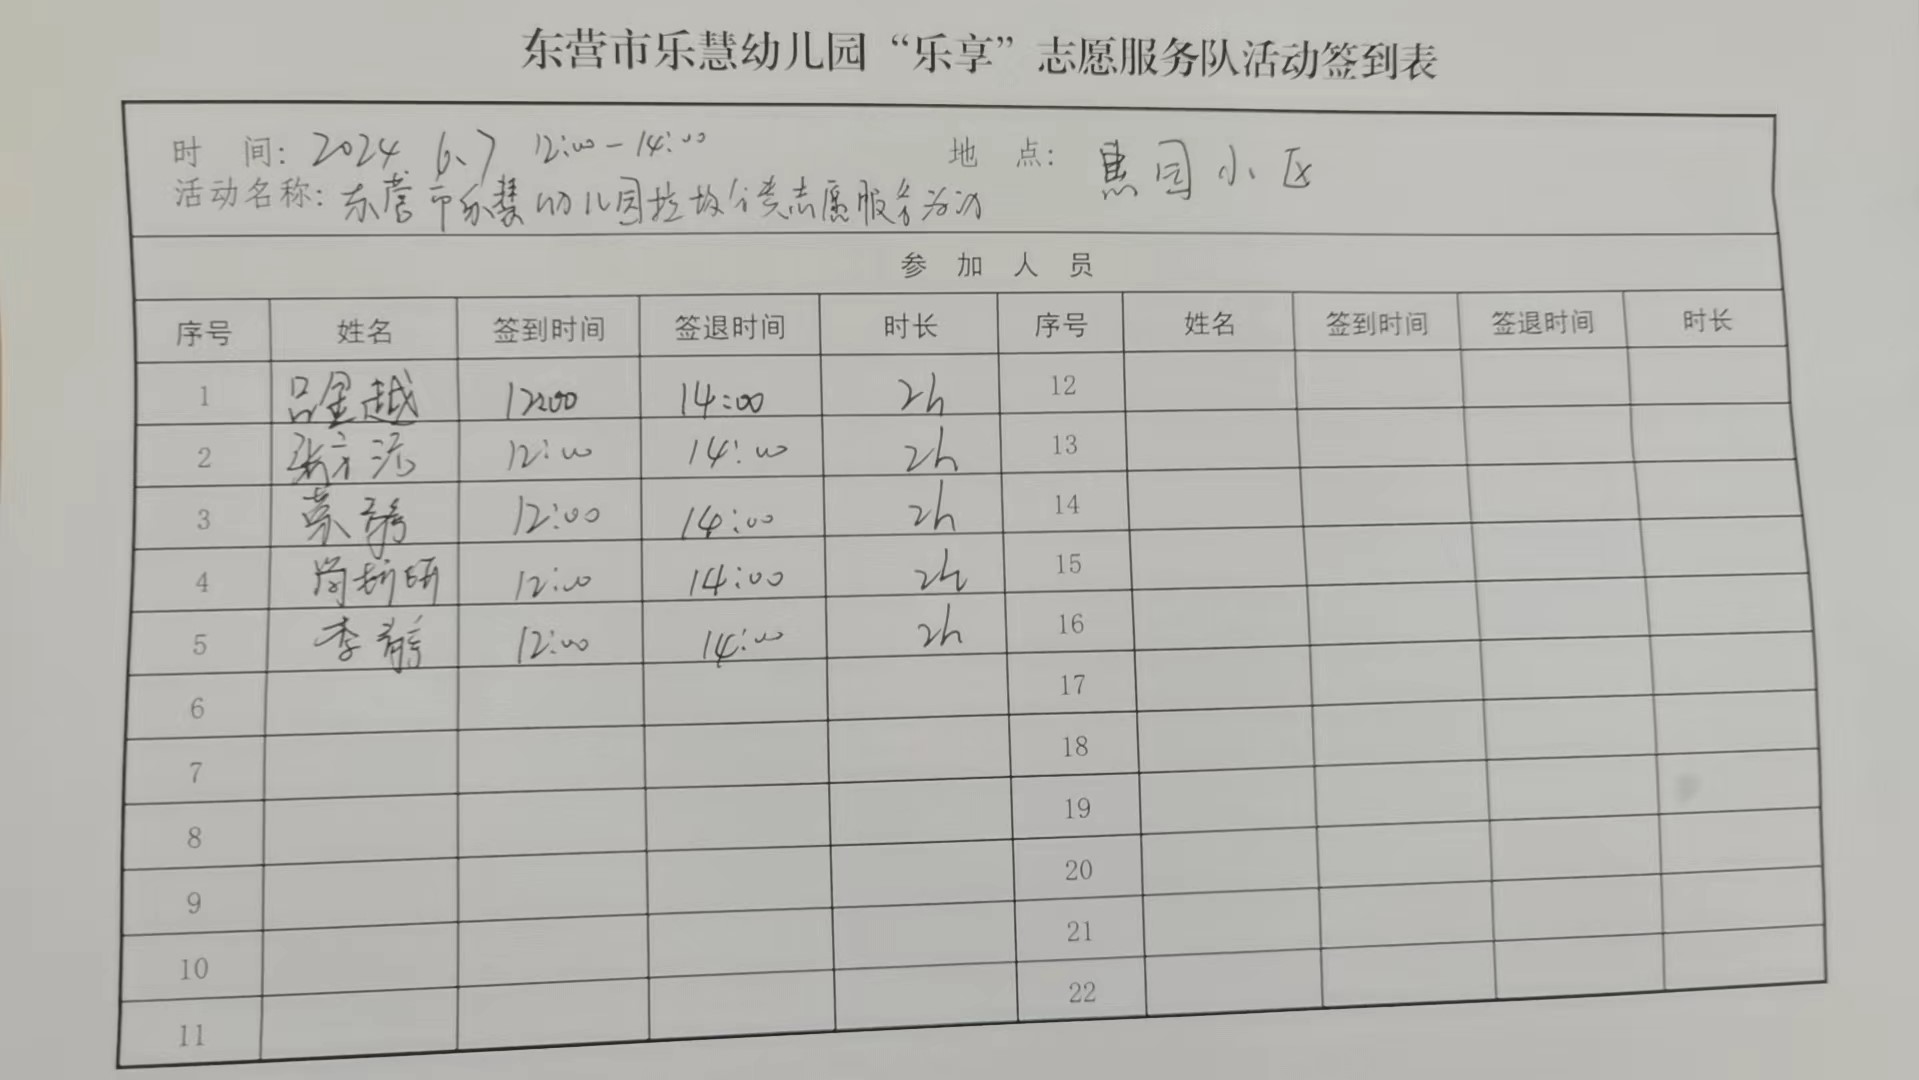 东营市乐慧幼儿园“乐享”志愿服务队活动签到表
时 间：2024 6.7 12:00-14:00 地 点：惠园小区
活动名称：东营市乐慧幼儿园垃圾分类志愿服务活动
参 加 人 员
序号 姓名 签到时间 签退时间 时长 序号 姓名 签到时间 签退时间 时长
1 吕金越 12:00 14:00 2h 12
2 张 12:00 14:00 2h 13
3 12:00 14:00 2h 14
4 尚 研 12:00 14:00 2h 15
5 李静 12:00 14:00 2h 16
6 17
7 18
8 19
9 20
10 21
11 22